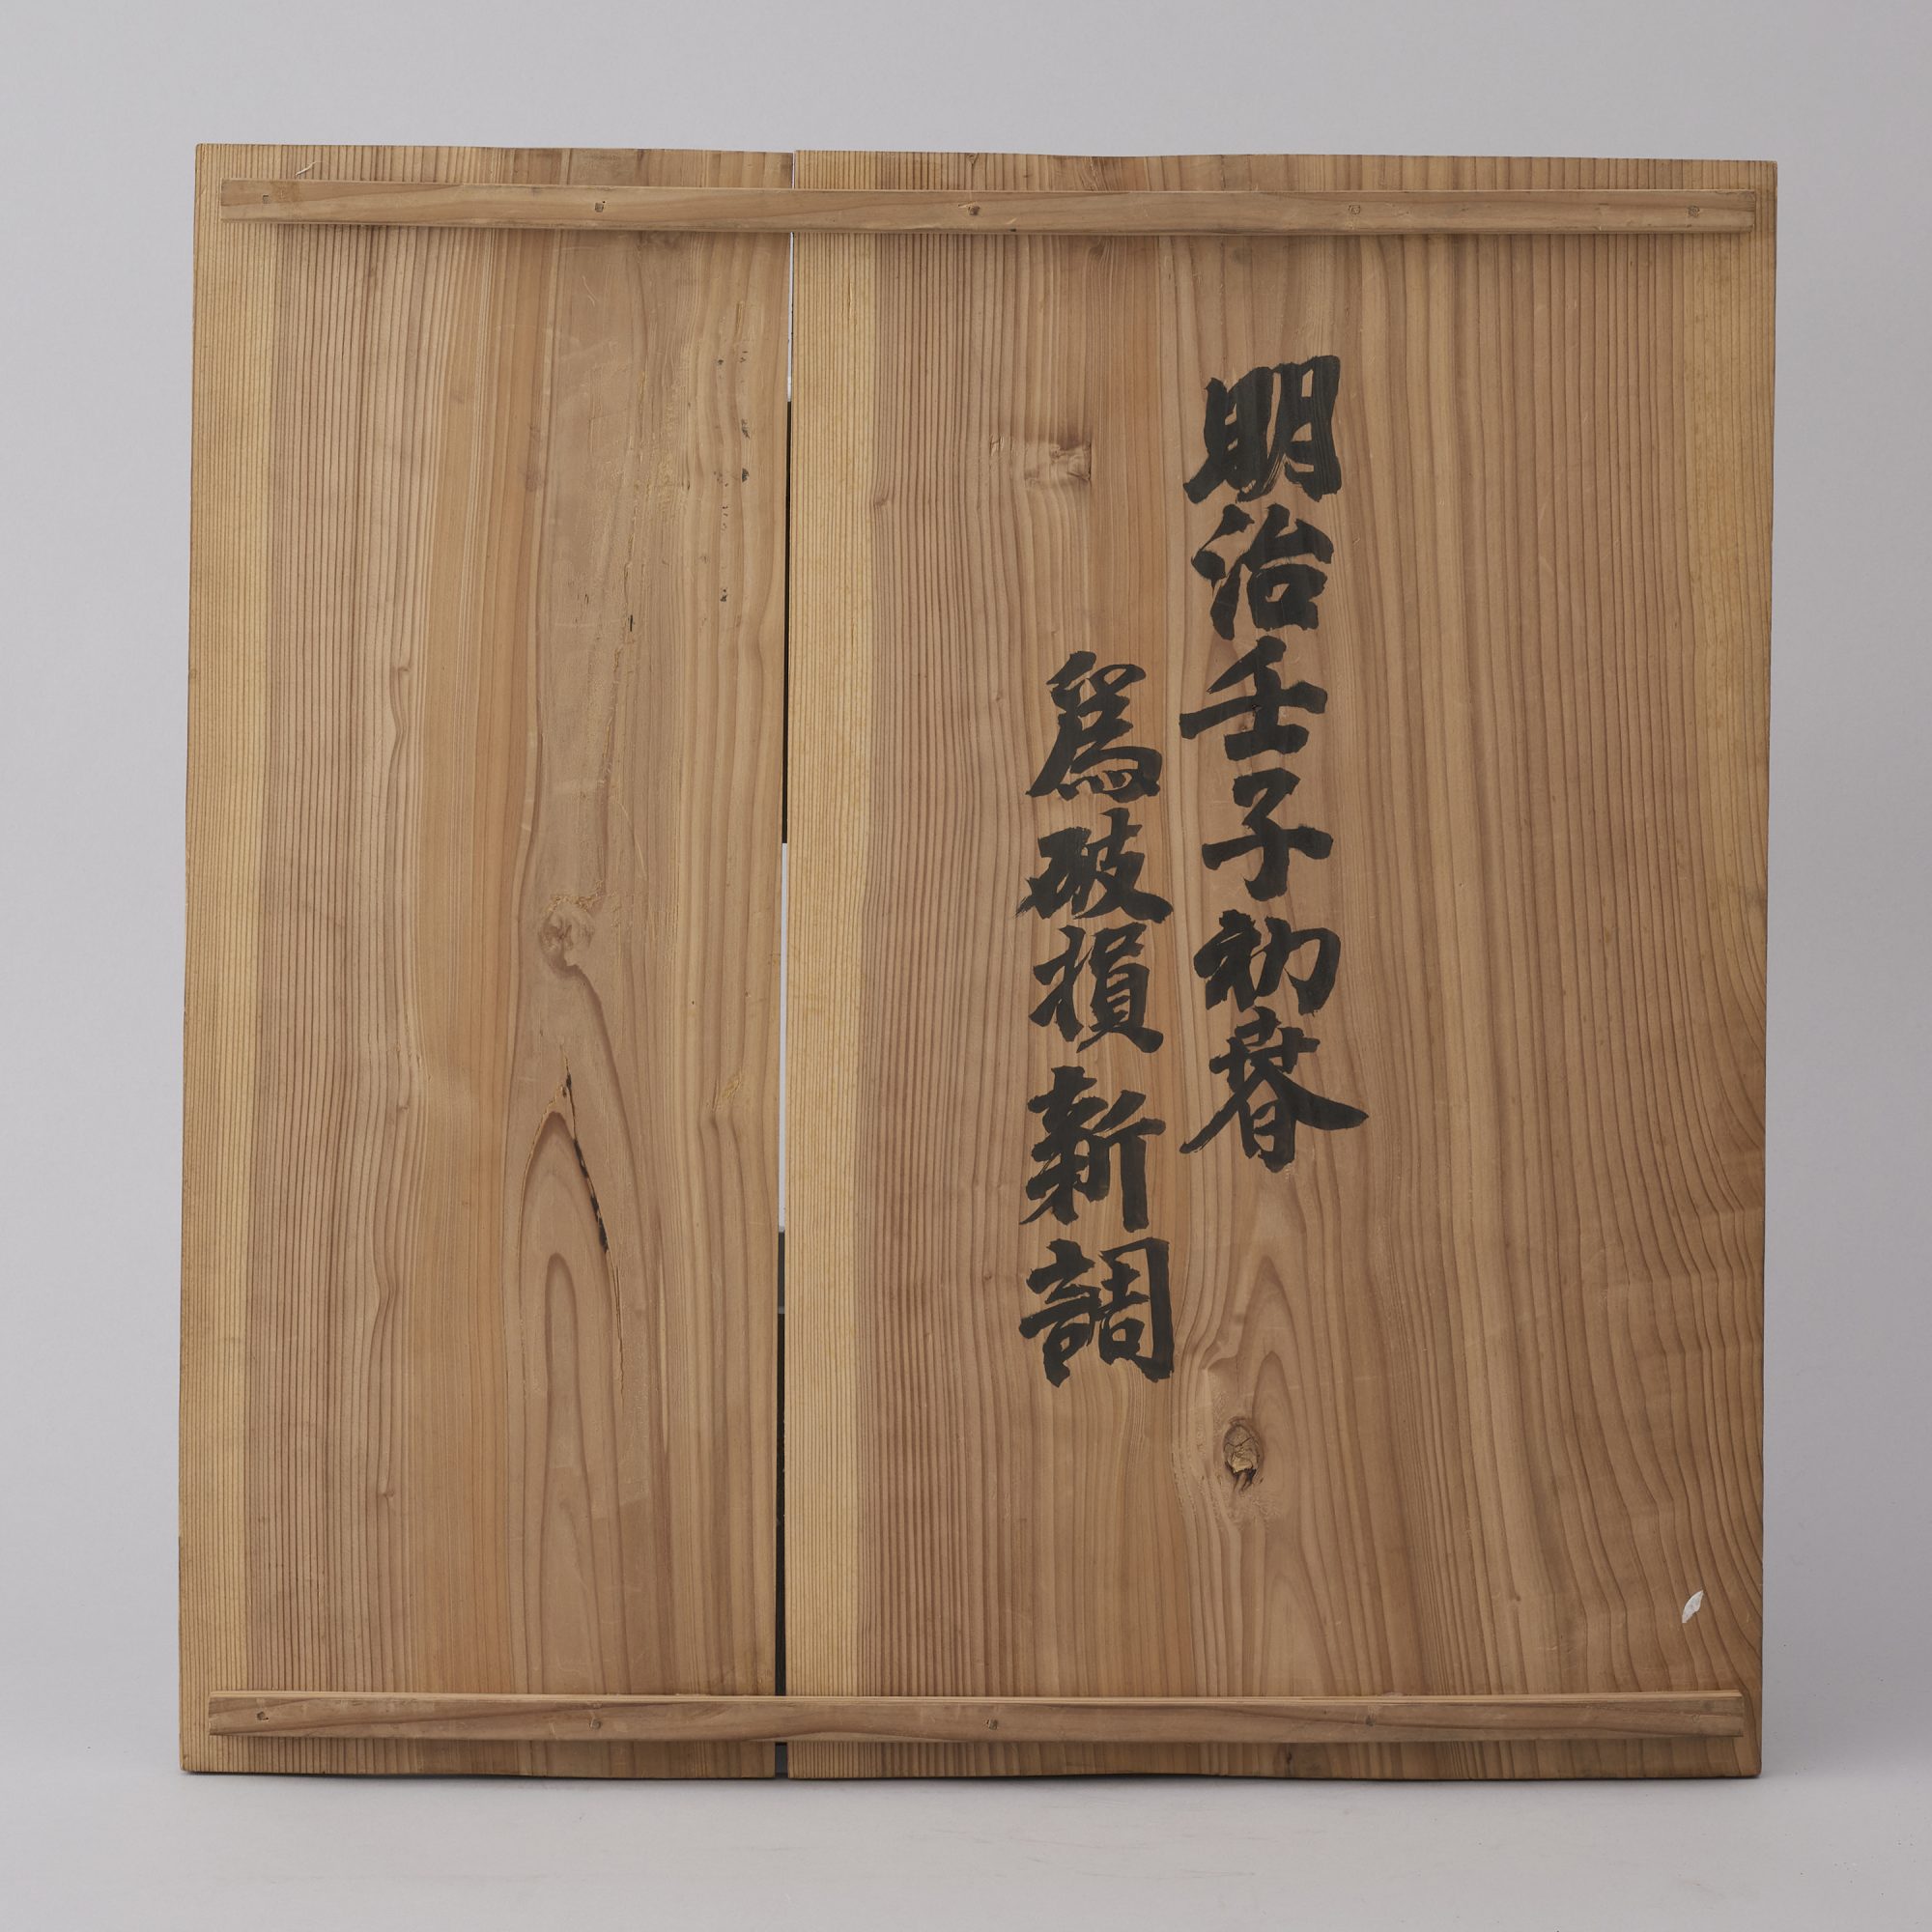 明治壬子初春
為破損新調